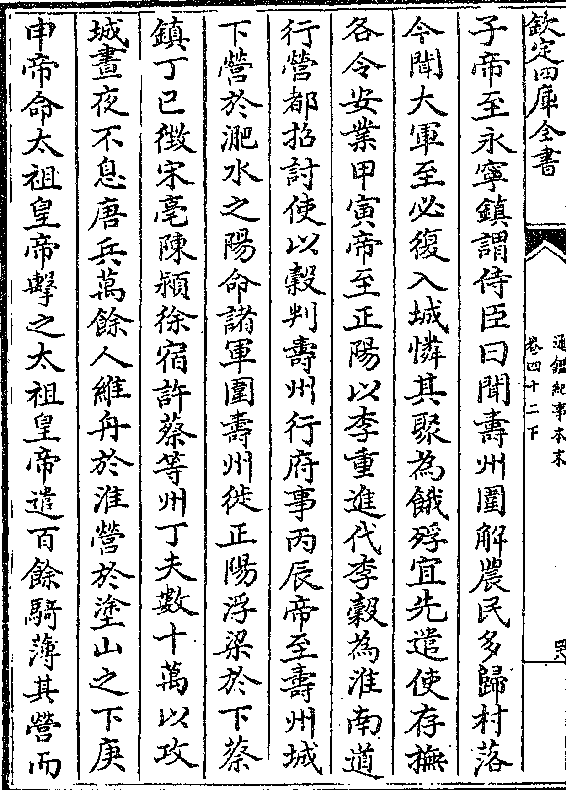 欽定四庫全書
通鑑紀事本末
卷四十二下
子帝至永寧鎮謂侍臣曰聞壽州圍解農民多歸村落
今聞大軍至必復入城憐其聚為餓殍宜先遣使存撫
各令安業甲寅帝至正陽以李重進代李穀為淮南道
行營都招討使以穀判壽州行府事丙辰帝至壽州城
下營於淝水之陽命諸軍圍壽州徙正陽浮梁於下蔡
鎮丁巳徵宋亳陳潁徐宿許蔡等州丁夫數十萬以攻
城晝夜不息唐兵萬餘人維舟於淮營於塗山之下庚
申帝命太祖皇帝擊之太祖皇帝遣百餘騎薄其營而